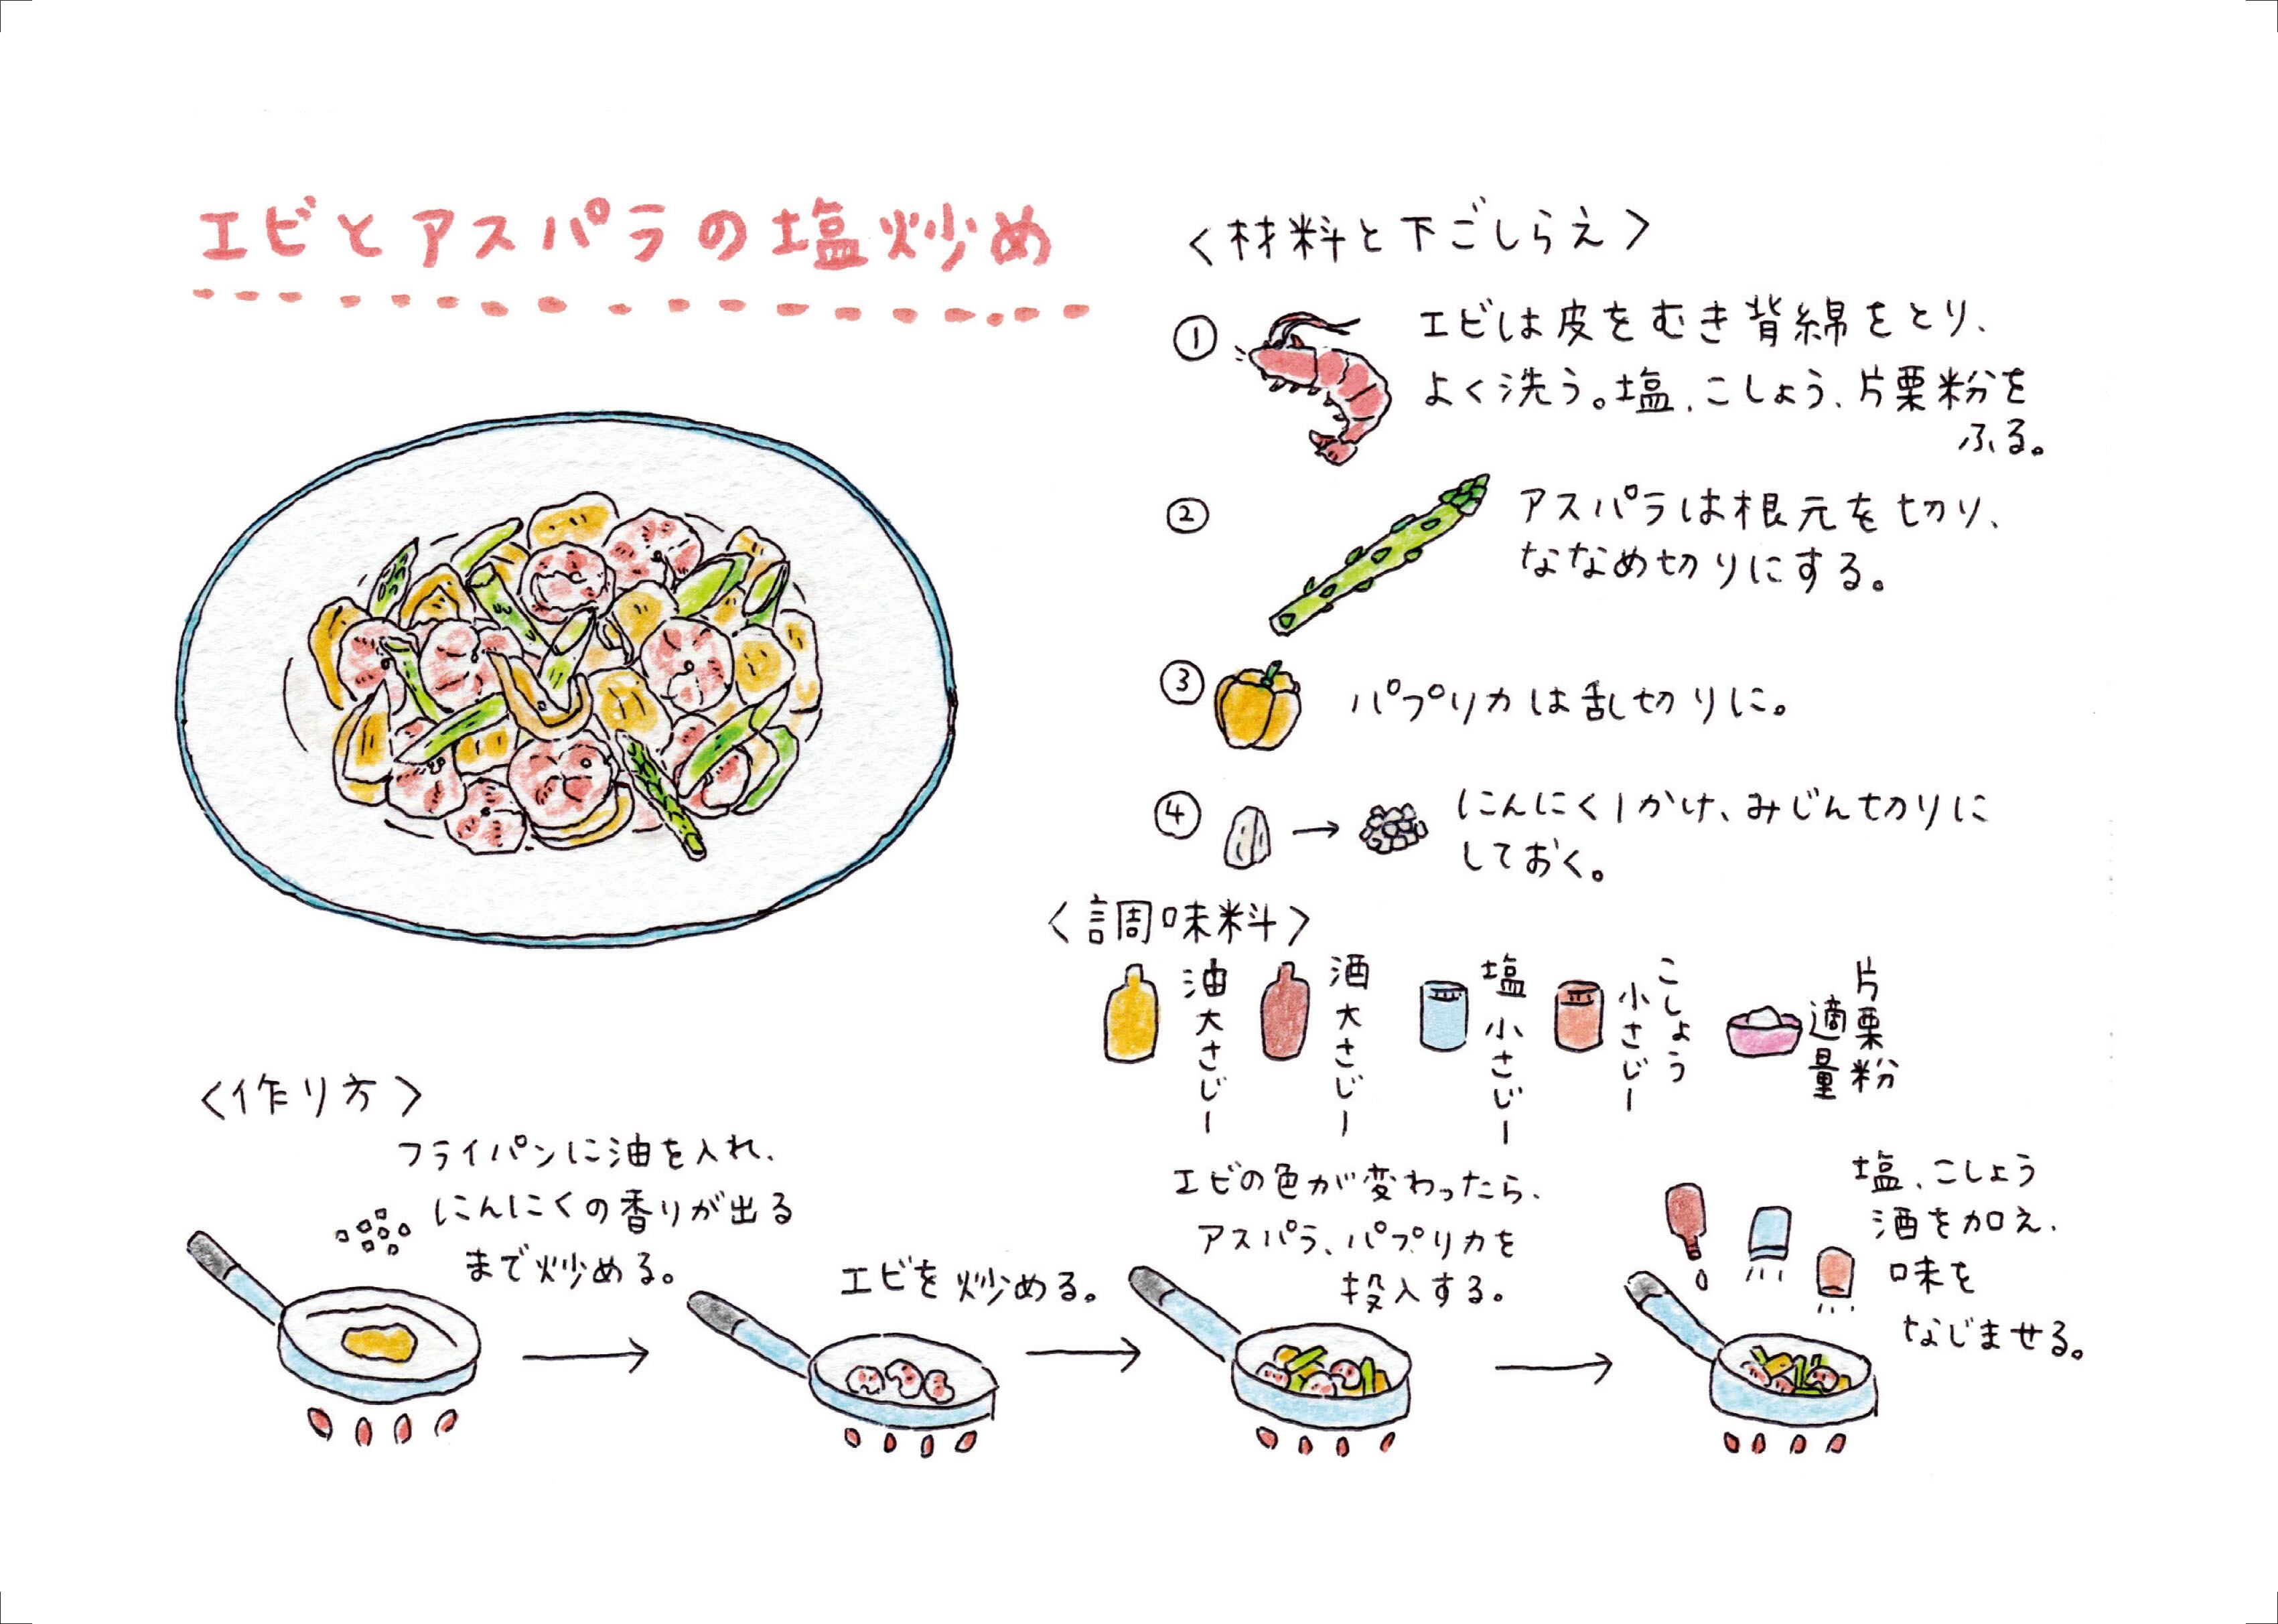 エビとアスパラの塩炒め
<材料と下ごしらえ>
①
エビは皮をむき背綿をとり、
よく洗う。塩、こしょう、片栗粉を
ふる。
②
アスパラは根元を切り、
ななめ切りにする。
③
パプリカは乱切りに。
④
にんにく1かけ、みじん切りに
しておく。
<調味料>
油大さじ1
酒大さじ1
塩小さじ1
こしょう
小さじ1
片栗粉
適量
<作り方>
フライパンに油を入れ、
にんにくの香りが出る
まで炒める。
エビを炒める。
エビの色が変わったら、
アスパラ、パプリカを
投入する。
塩、こしょう
酒を加え、
味を
なじませる。